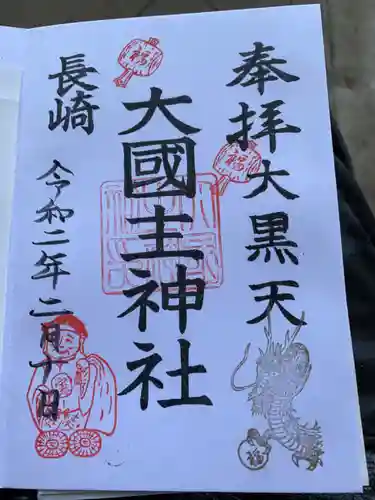 奉拝大黒天
大國主神社
長崎
令和二年二月十日
福
福
福